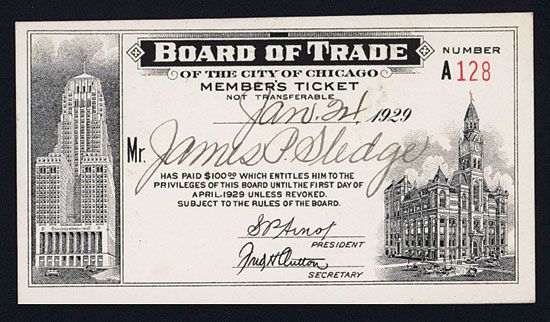 BOARD OF TRADE
NUMBER
OF THE CITY OF CHICAGO
A128
MEMBER'S TICKET
NOT TRANSFERABLE
Jan. 24, 1929
Mr. James P. Sledge
HAS PAID $100.00 WHICH ENTITLES HIM TO THE
PRIVILEGES OF THIS BOARD UNTIL THE FIRST DAY OF
APRIL-1929 UNLESS REVOKED.
SUBJECT TO THE RULES OF THE BOARD.
S P Arnot
PRESIDENT
Fred H Clutton
SECRETARY